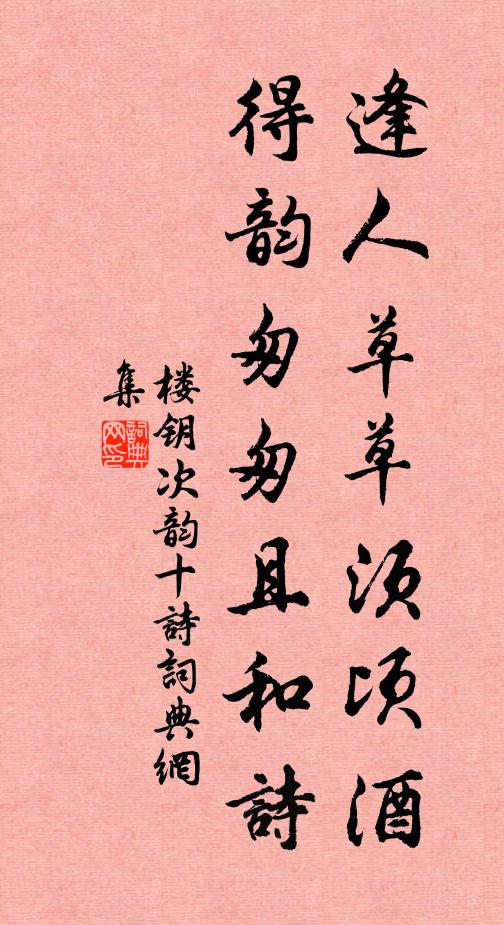 逢人草草须顷酒
得韵匆匆且和詩
楼钥次韵十詩詞典網
集
詞典
网印